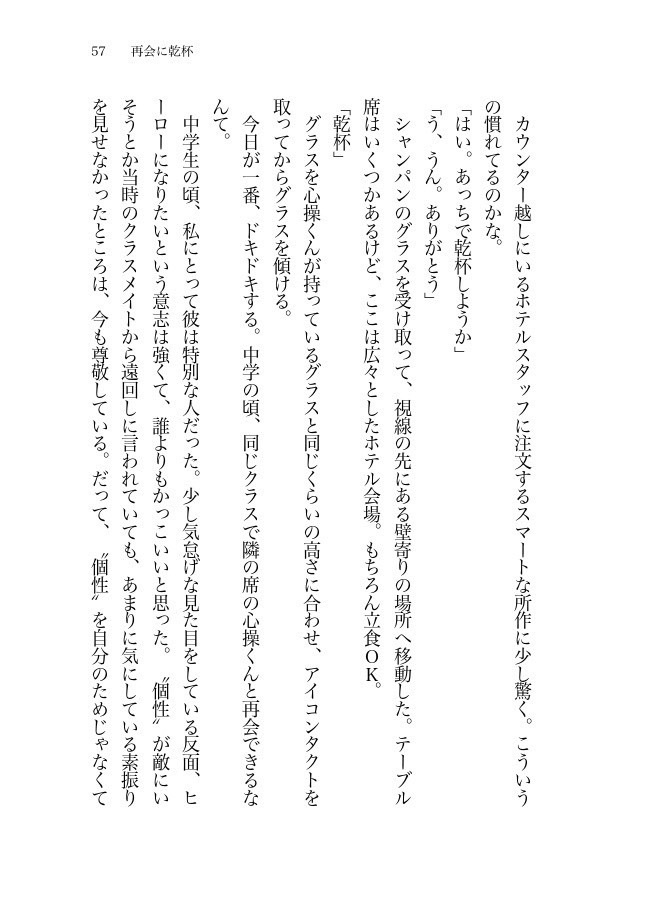 57　再会に乾杯
　カウンター越しにいるホテルスタッフに注文するスマートな所作に少し驚く。こういう
の慣れてるのかな。
「はい。あっちで乾杯しようか」
「う、うん。ありがとう」
　シャンパンのグラスを受け取って、視線の先にある壁寄りの場所へ移動した。テーブル
席はいくつかあるけど、ここは広々としたホテル会場。もちろん立食OK。
「乾杯」
　グラスを心操くんが持っているグラスと同じくらいの高さに合わせ、アイコンタクトを
取ってからグラスを傾ける。
　今日が一番、ドキドキする。中学の頃、同じクラスで隣の席の心操くんと再会できるな
んて。
　中学生の頃、私にとって彼は特別な人だった。少し気怠げな見た目をしている反面、ヒ
ーローになりたいという意志は強くて、誰よりもかっこいいと思った。〝個性〟が敵にい
そうとか当時のクラスメイトから遠回しに言われていても、あまりに気にしている素振り
を見せなかったところは、今も尊敬している。だって、〝個性〟を自分のためじゃなくて